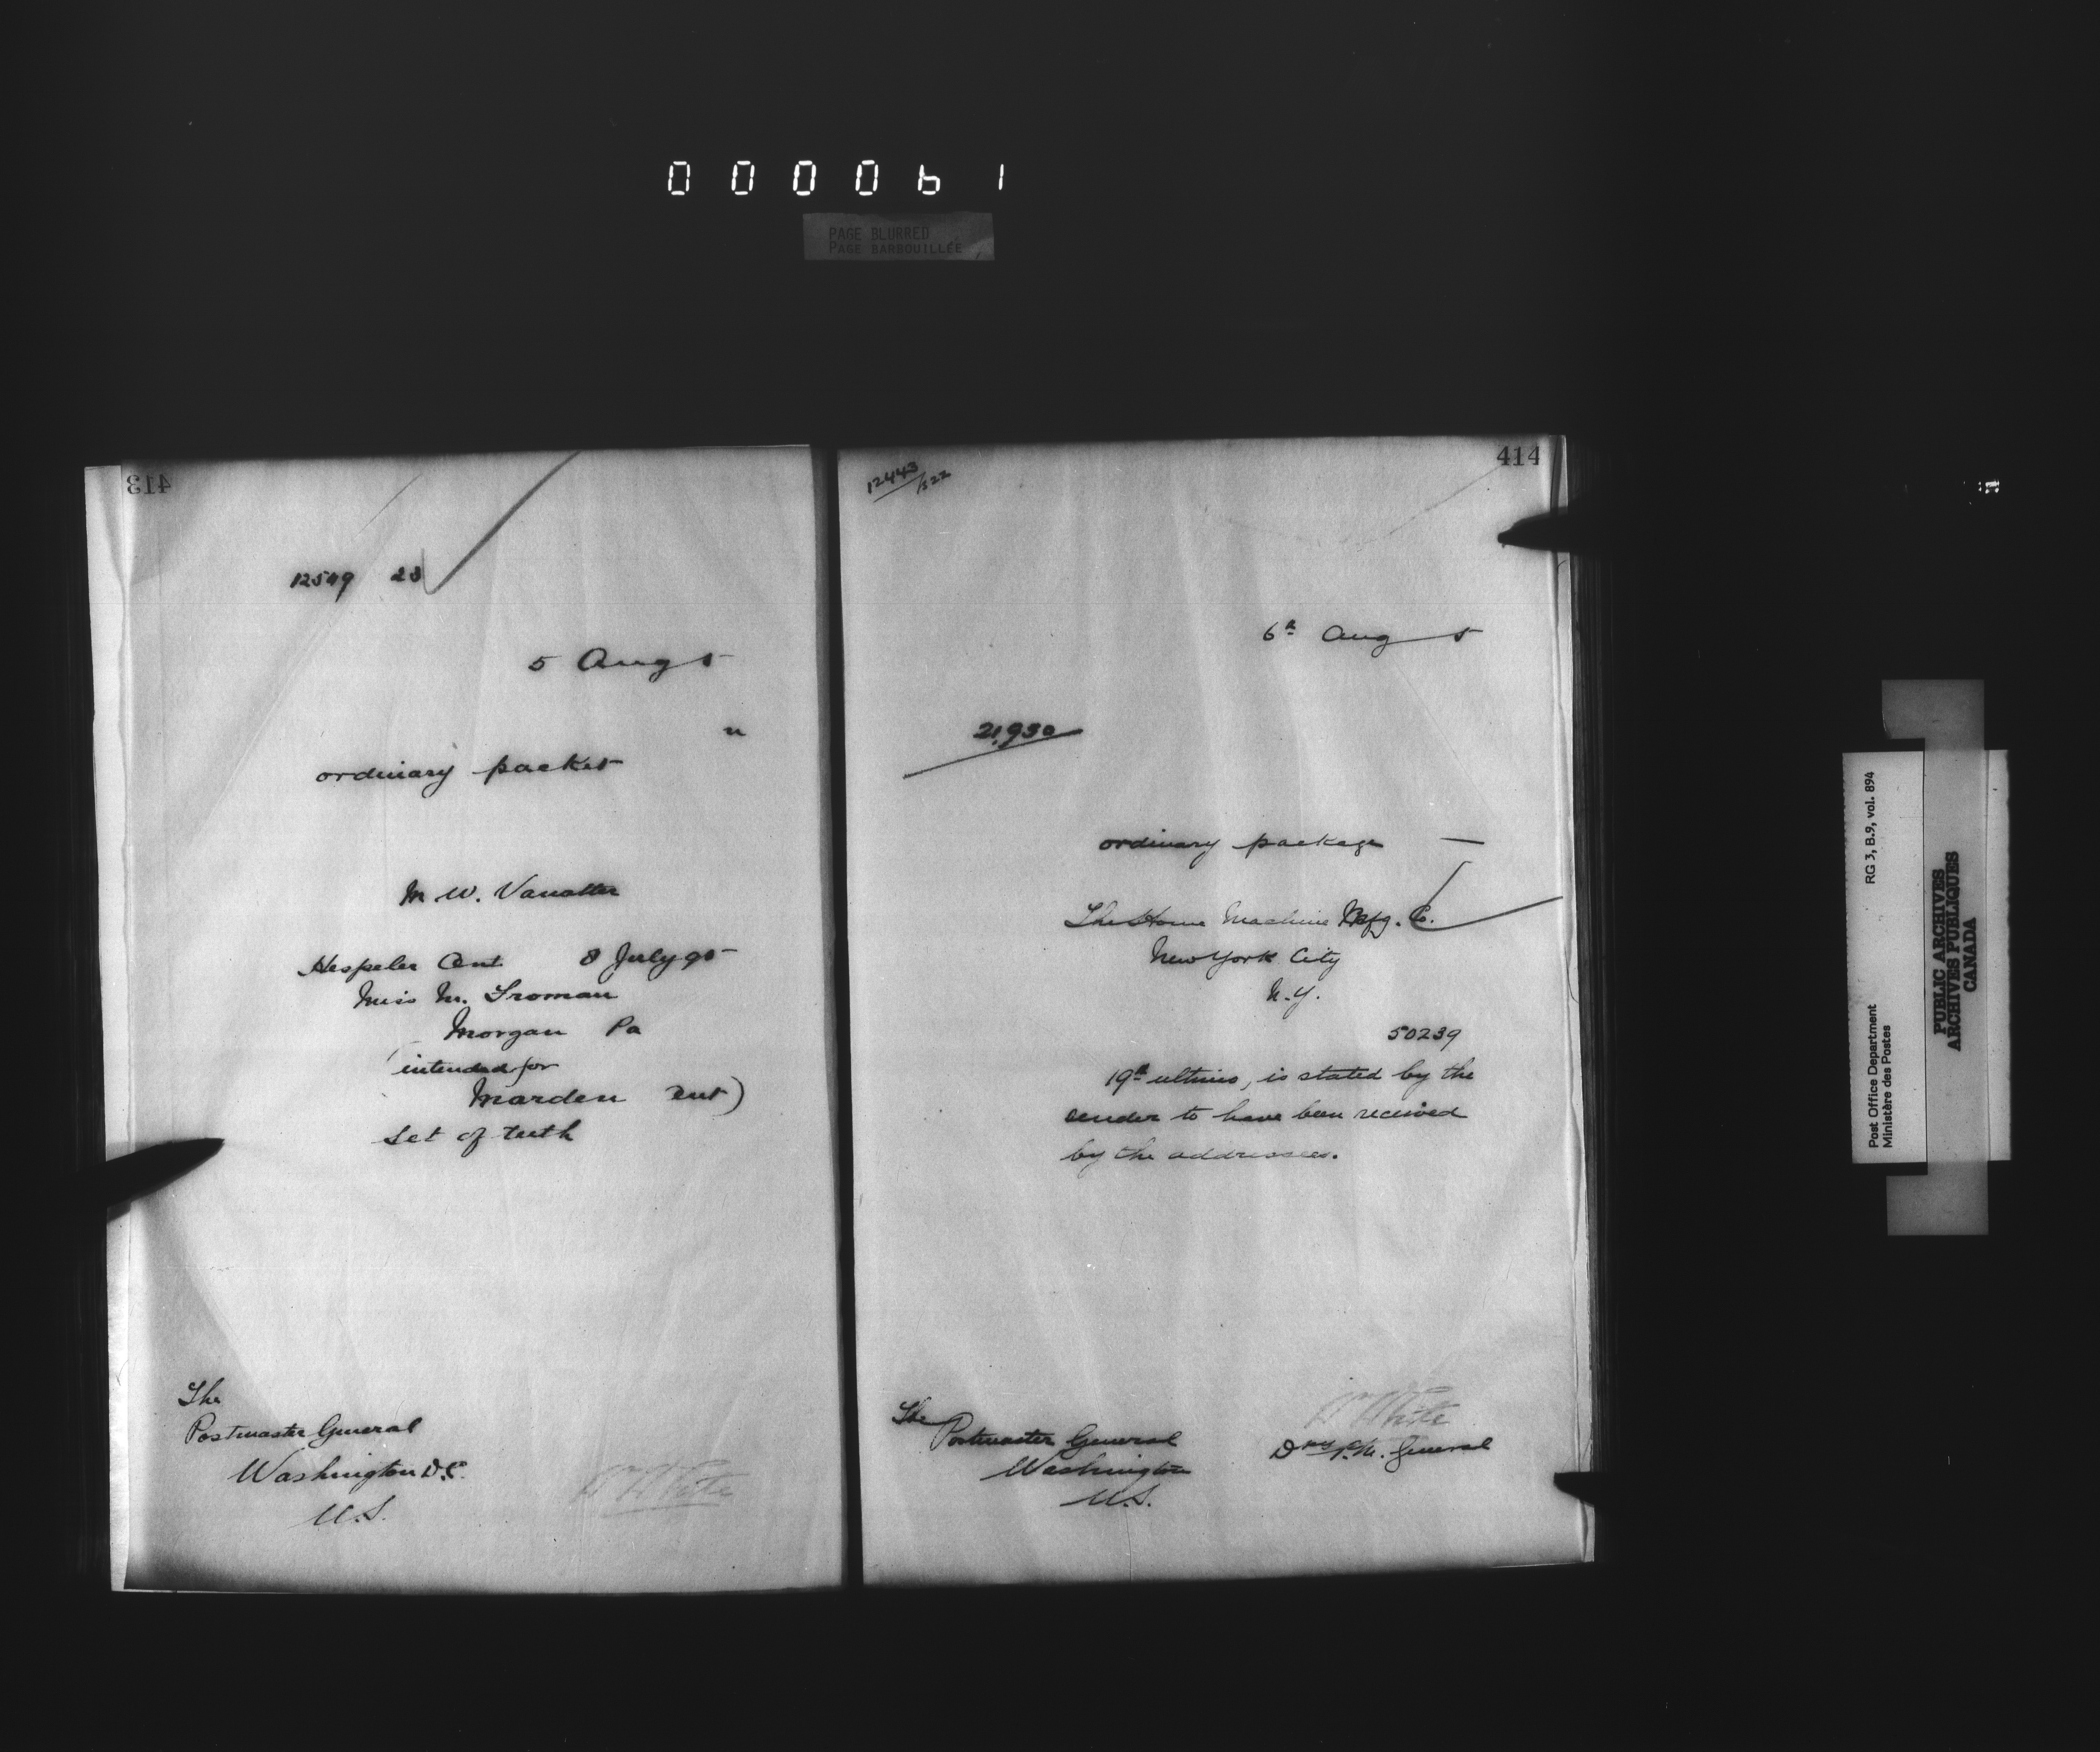 000061
PAGE BLURRED
PAGE BARBOUILLÉE
413
12549 23
5 Aug 5
n
ordinary packet
M. W. Vanatter
Hespeler Ont 8 July 95
Miss M. Froman
Morgan Pa
intended for
Marden Ont)
Set of teeth
The
Postmaster General
Washington D.C.
U.S.
W H White
414
12443/522
6th Aug 5
21,930
ordinary package
The Home Machine Mfg. Co.
New York City
N.Y.
50239
19th ultimo, is stated by the
sender to have been received
by the addressee.
The
Postmaster General
Washington
U.S.
W H White
Dpy P.M. General
RG 3, B.9, vol. 894
Post Office Department
Ministère des Postes
PUBLIC ARCHIVES
ARCHIVES PUBLIQUES
CANADA